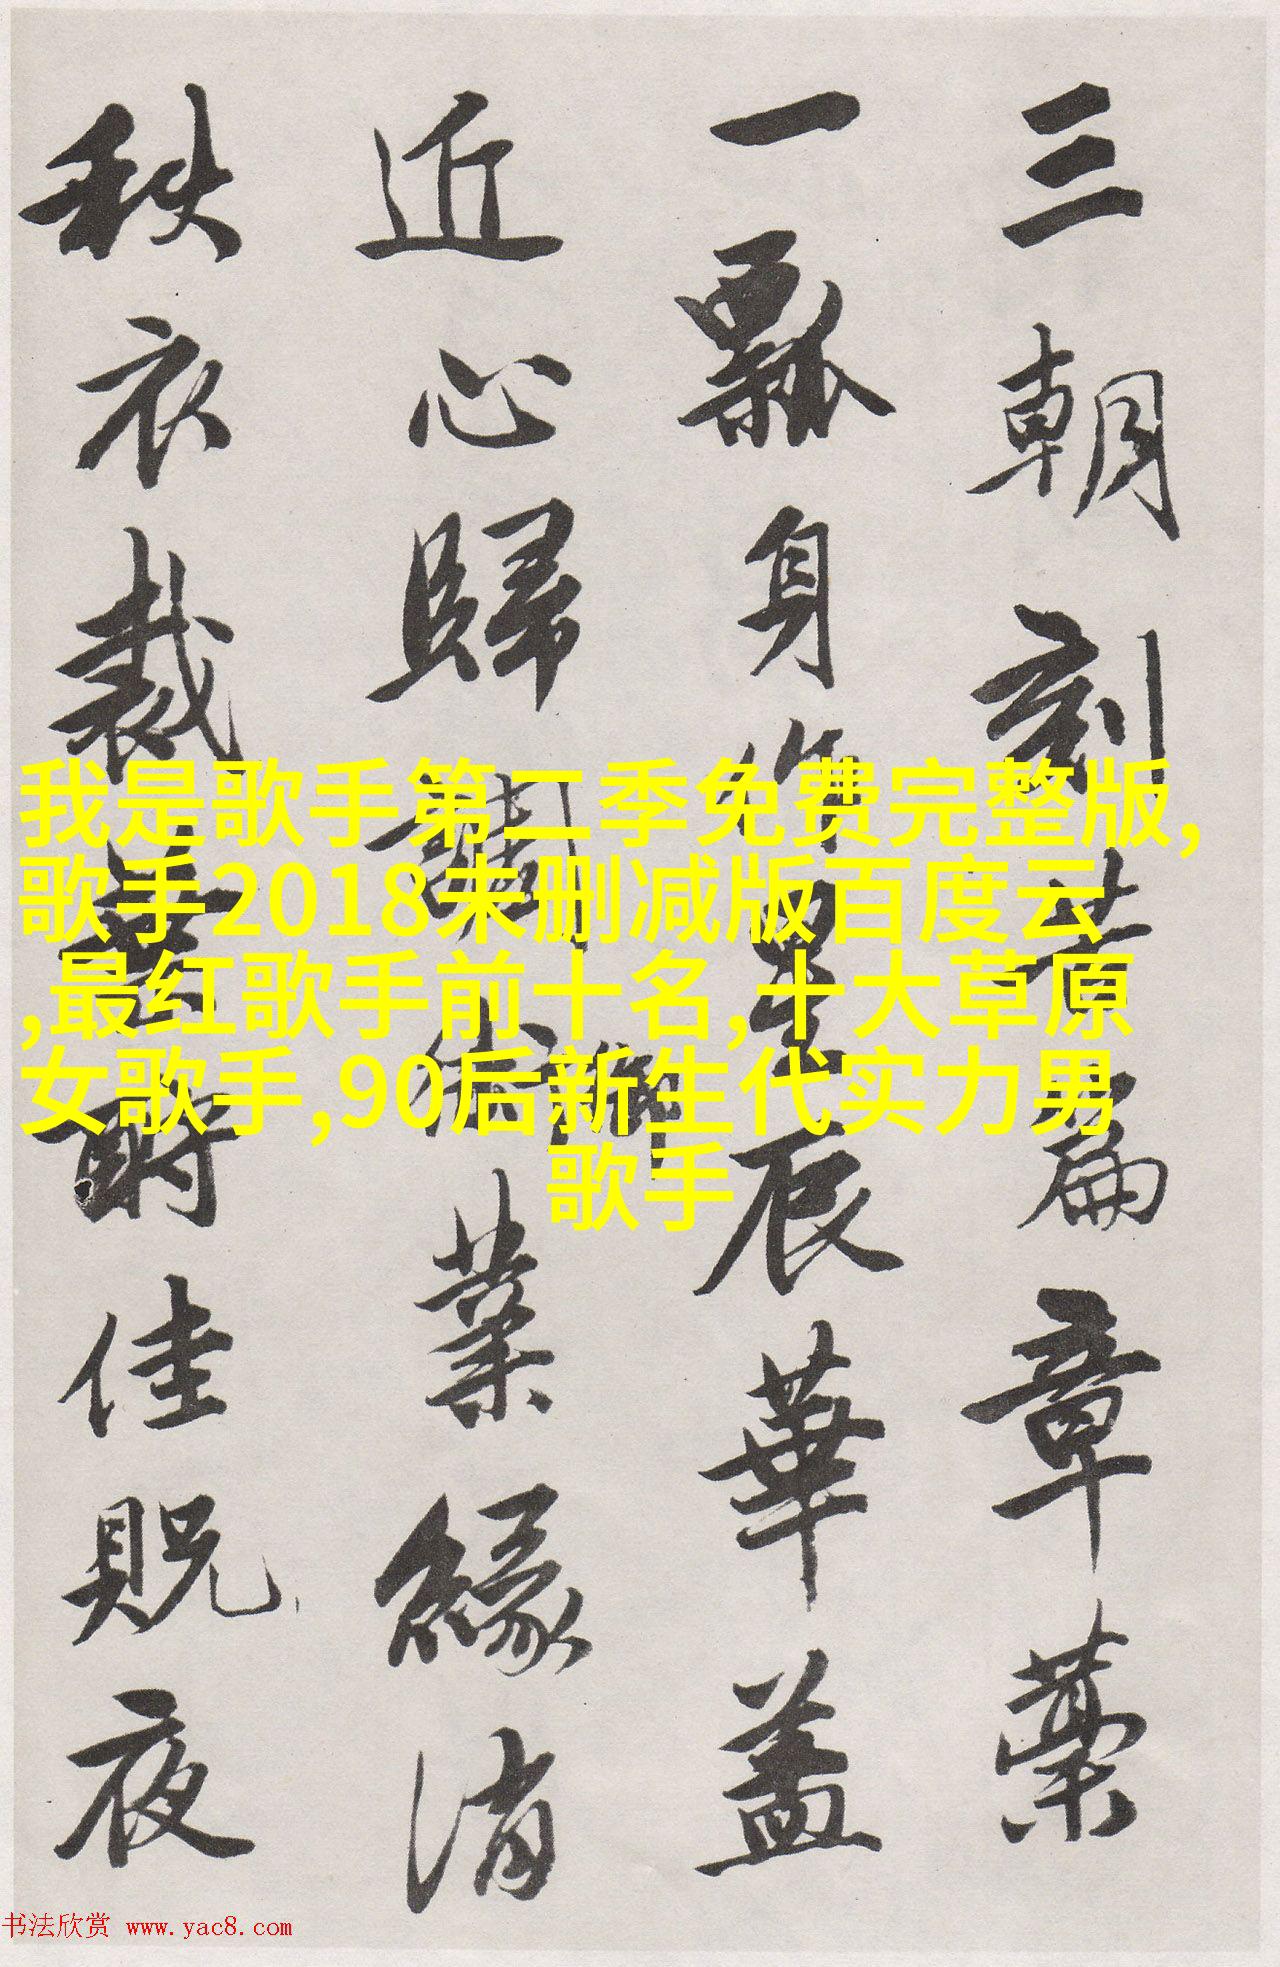 三朝刻苦篇章藁
一瓢身作星辰華盖
近心歸講術業緣消
秩衣裁
酹佳貺夜
我是歌手第二季免费完整版,
歌手2018未删减版百度云
,最红歌手前十名,十大草原
女歌手,90后新生代实力男
歌手
书法欣赏 www.yac8.com